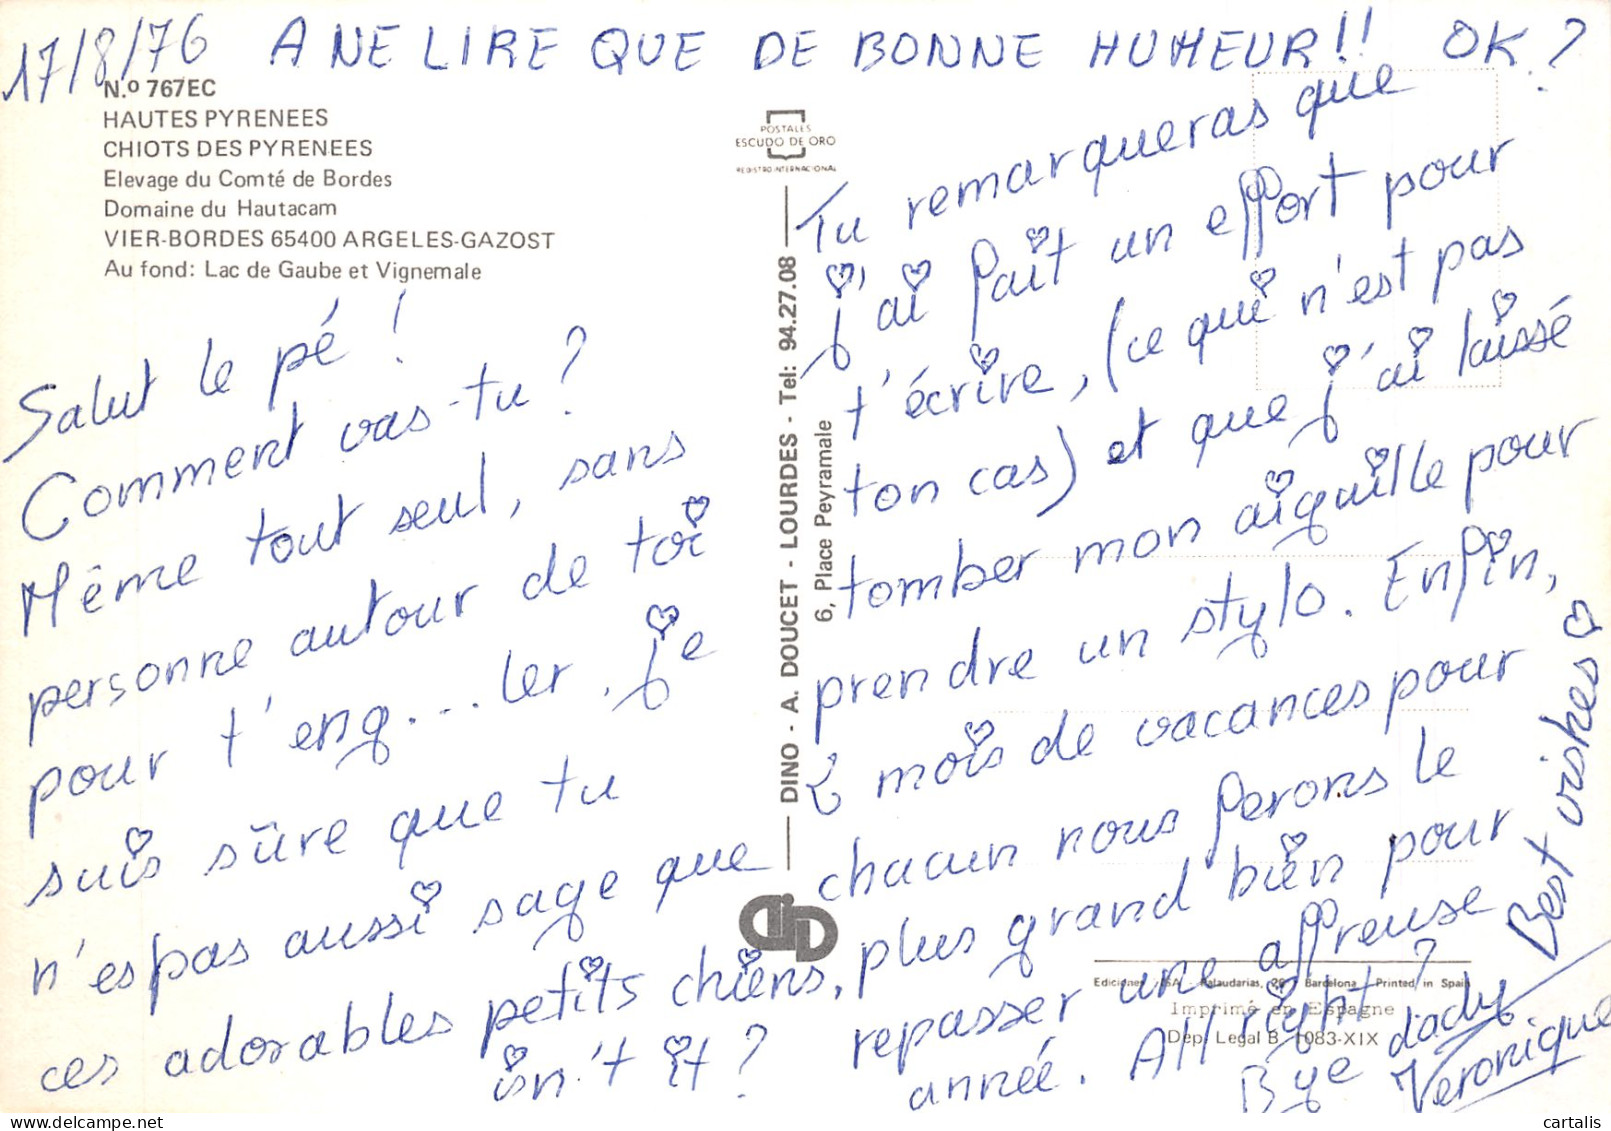 17/8/76 A NE LIRE QUE DE BONNE HUMEUR!! OK ?
N.º 767EC
HAUTES PYRENEES
CHIOTS DES PYRENEES
Elevage du Comté de Bordes
Domaine du Hautacam
VIER-BORDES 65400 ARGELES-GAZOST
Au fond: Lac de Gaube et Vignemale
Salut le pé !
Comment vas-tu ?
Même tout seul, sans
personne autour de toi
pour t'eng...ler. Je
suis sûre que tu
n'es pas aussi sage que
ces adorables petits chiens,
isn't it ?
POSTALES
ESCUDO DE ORO
REGISTRO INTERNACIONAL
DINO - A. DOUCET - LOURDES - Tel: 94.27.08
6, Place Peyramale
DiD
Tu remarqueras que
j'ai fait un effort pour
t'écrire, (ce qui n'est pas
ton cas) et que j'ai laissé
tomber mon aiguille pour
prendre un stylo. Enfin,
2 mois de vacances pour
chacun nous ferons le
plus grand bien pour
repasser une affreuse
année. All right ?
Bye dady
Best vishes
Veronique
Ediciones Palaudarias, 26 Barcelona Printed in Spain
Imprimé en Espagne
Dep. Legal B. 1083-XIX
cartalis